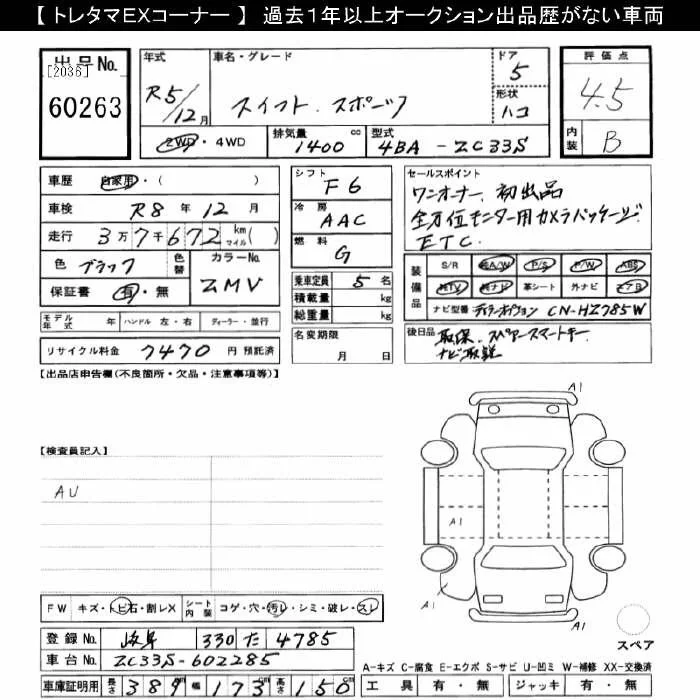 【 トレタマEXコーナー 】 過去1年以上オークション出品歴がない車両
出品No.
[2036]
60263
年式
R5/12月
車名・グレード
スイフト.スポーツ
ドア
5
形状
ハコ
評価点
4.5
内装
B
2WD・4WD
排気量
1400 cc
型式
4BA - ZC33S
車歴 自家用・( )
車検 R8 年 12 月
走行 3万7千672 km マイル( )
色 ブラック
色替
カラーNo.
ZMV
保証書 有・無
モデル年式 年 ハンドル 左・右 ディーラー・並行
リサイクル料金 7470 円 預託済
シフト
F6
冷房
AAC
燃料
G
乗車定員 5 名
積載量 kg
総重量 kg
名変期限
月 日
セールスポイント
ワンオーナー、初出品
全方位モニター用カメラパッケージ
ETC
装備品
S/R 純A/W P/S P/W ABS
純TV 純ナビ 革シート 外ナビ エアB
ナビ型番 ディーラーオプション CN-HZ785W
後日品
取保.スペアースマートキー
ナビ取説
【出品店申告欄(不良箇所・欠品・注意事項等)】
【検査員記入】
AU
A1
A1
A1
A1
FW キズ・トビ石・割レX
シート内装 コゲ・穴・汚レ・シミ・破レ・スレ
登録No. 岐阜 330 た 4785
車台No. ZC33S-602285
車庫証明用 長さ 389 cm 幅 173 cm 高さ 150 cm
スペア
A-キズ C-腐食 E-エクボ S-サビ U-凹ミ W-補修 XX-交換済
工具 有・無 ジャッキ 有・無